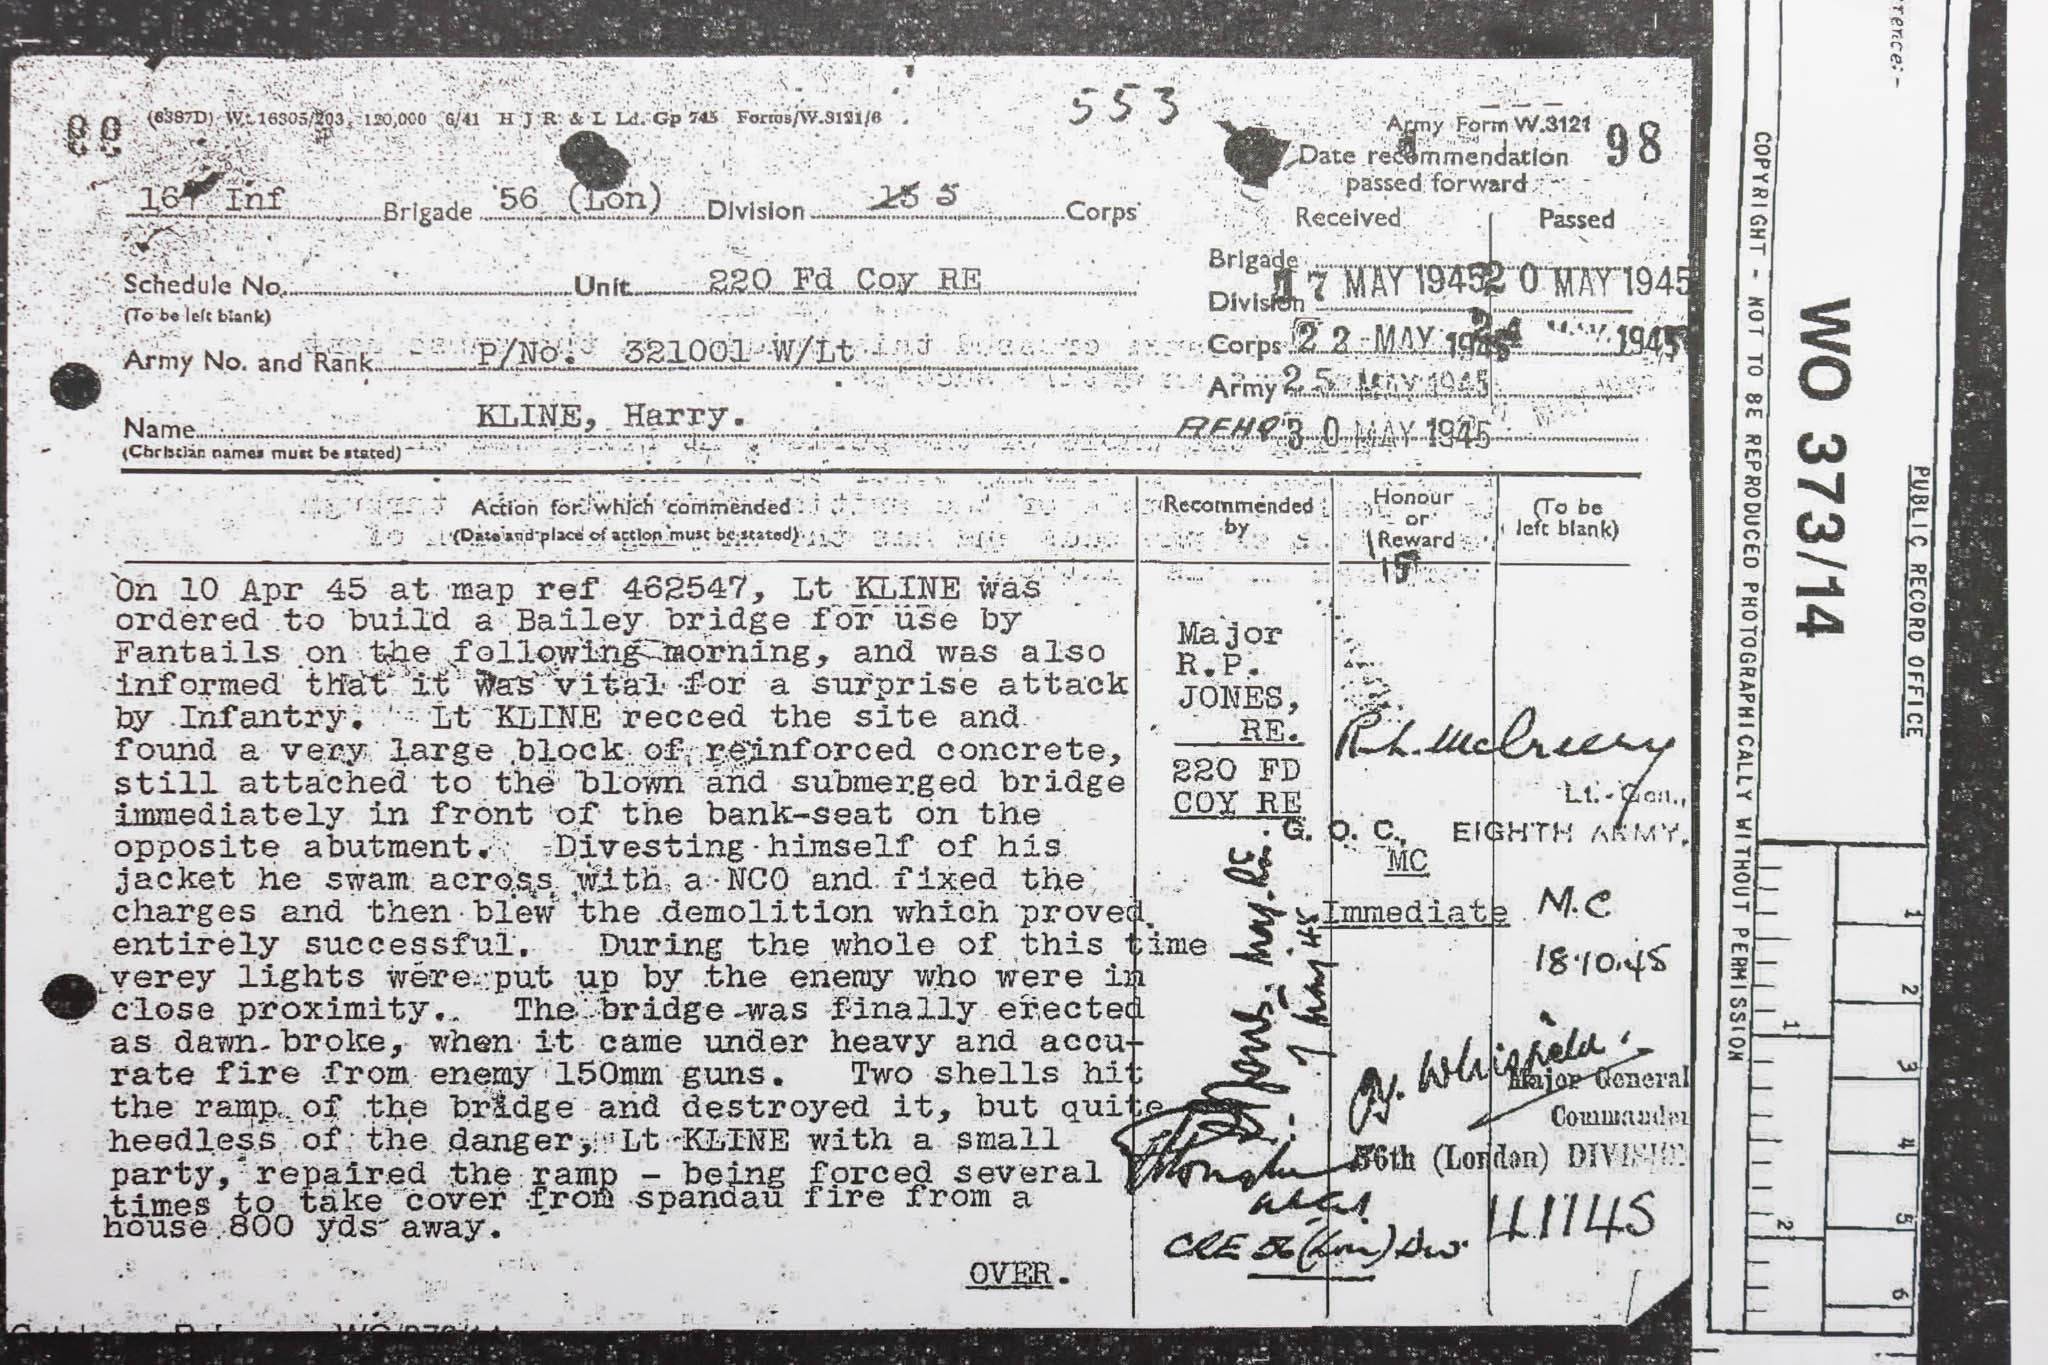 553
(6387D) Wt. 16305/203 120,000 6/41 H J R & L Ld. Gp 745 Forms/W.3121/6
Army Form W.3121
98
Date recommendation
passed forward
167 Inf Brigade 56 (Lon) Division 5 Corps
Received Passed
Schedule No. Unit 220 Fd Coy RE
(To be left blank)
Brigade
Division 17 MAY 1945 20 MAY 1945
Corps 22 MAY 1945 24 MAY 1945
Army No. and Rank P/No. 321001 W/Lt
Army 25 MAY 1945
Name KLINE, Harry.
(Christian names must be stated)
AFHQ 30 MAY 1945
Action for which commended
(Date and place of action must be stated)
Recommended
by
Honour
or
Reward
(To be
left blank)
On 10 Apr 45 at map ref 462547, Lt KLINE was
ordered to build a Bailey bridge for use by
Fantails on the following morning, and was also
informed that it was vital for a surprise attack
by Infantry. Lt KLINE recced the site and
found a very large block of reinforced concrete,
still attached to the blown and submerged bridge
immediately in front of the bank-seat on the
opposite abutment. Divesting himself of his
jacket he swam across with a NCO and fixed the
charges and then blew the demolition which proved
entirely successful. During the whole of this time
verey lights were put up by the enemy who were in
close proximity. The bridge was finally erected
as dawn broke, when it came under heavy and accu-
rate fire from enemy 150mm guns. Two shells hit
the ramp of the bridge and destroyed it, but quite
heedless of the danger, Lt KLINE with a small
party, repaired the ramp - being forced several
times to take cover from spandau fire from a
house 800 yds away.
OVER.
Major
R.P.
JONES,
RE.
220 FD
COY RE
7 May 45
CRE 56 (Lon) Div.
R.L. McCreery
Lt.-Gen.,
G. O. C., EIGHTH ARMY.
MC
Immediate
M.C
18.10.45
Whitfield
Major General
Commander
56th (London) DIVISION
COPYRIGHT - NOT TO BE REPRODUCED PHOTOGRAPHICALLY WITHOUT PERMISSION
WO 373/14
PUBLIC RECORD OFFICE
1
2
3
4
5
6
1
2